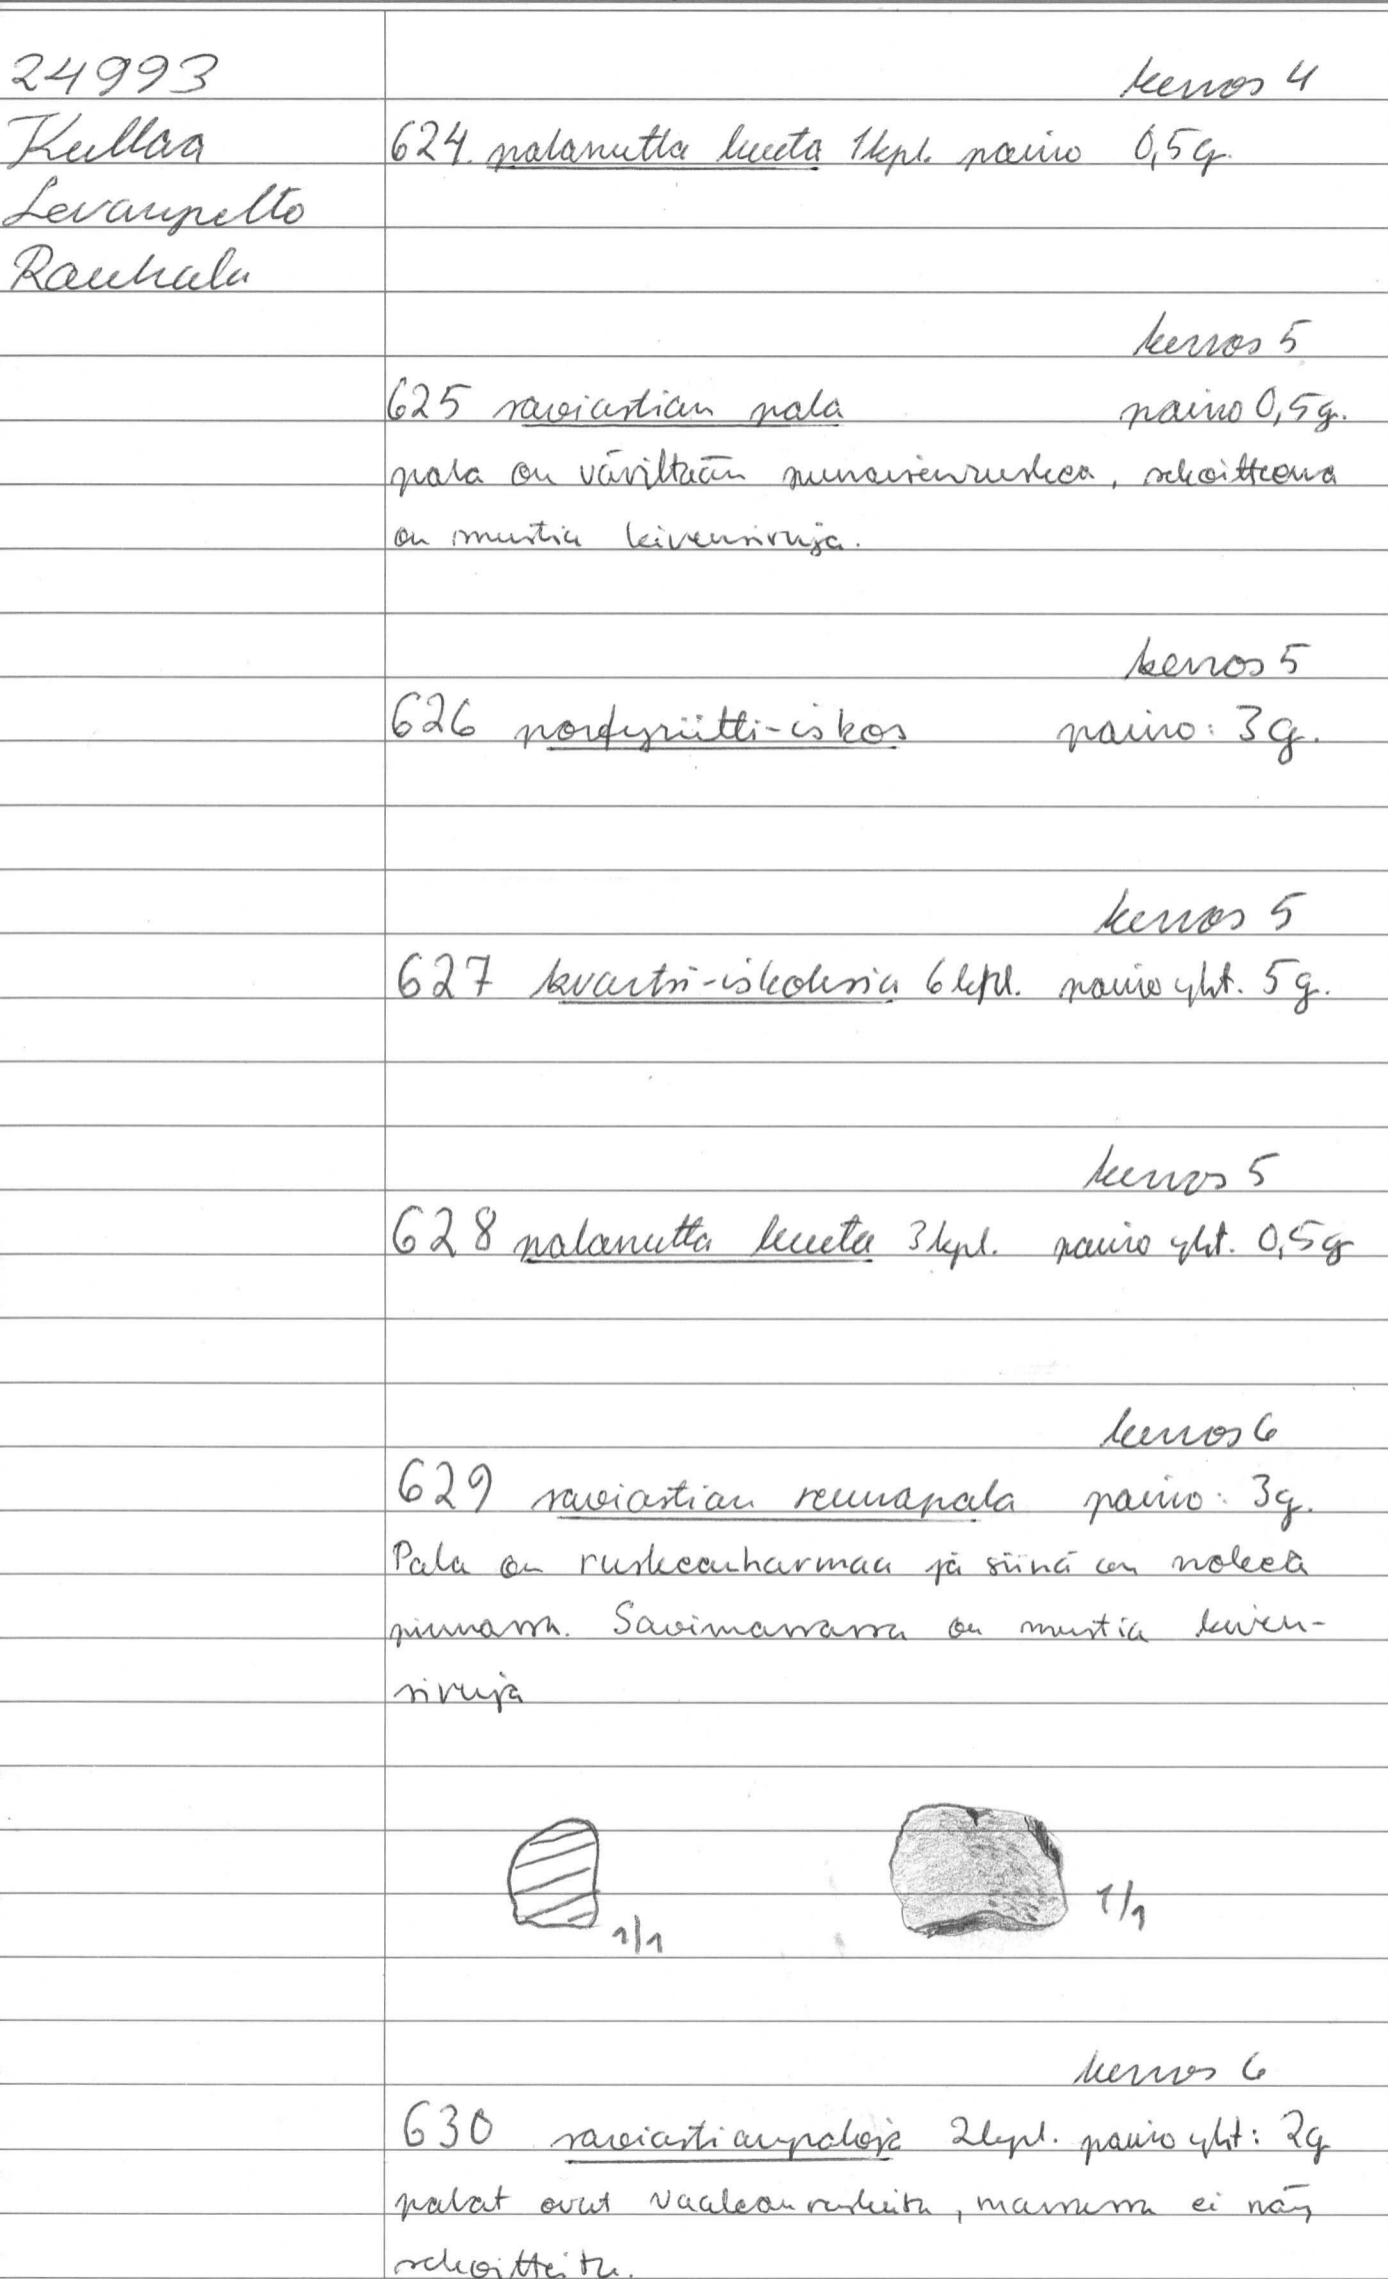 24993
kerros 4
Kullaa
624. palanutta luuta 1 kpl. paino 0,5g.
Levanpelto
Rauhala
kerros 5
625 saviastian pala paino 0,5g.
pala on väriltään punaisenruskea, sekoitteena
on mustia kivensiruja.
kerros 5
626 porfyriitti-iskos paino: 3g.
kerros 5
627 kvartsi-iskoksia 6 kpl. paino yht. 5g.
kerros 5
628 palanutta luuta 3 kpl. paino yht. 0,5g
kerros 6
629 saviastian reunapala paino: 3g.
Pala on ruskeanharmaa ja siinä on nokea
pinnassa. Savimassassa on mustia kiven-
siruja
1/1 1/1
kerros 6
630 saviastianpaloja 2 kpl. paino yht: 2g
palat ovat vaaleanruskeita, massassa ei näy
sekoitteita.